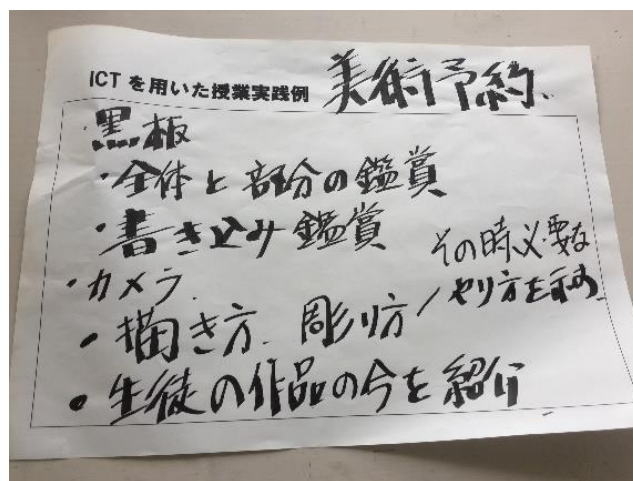 ICTを用いた授業実践例 美術予約
黒板
・全体と部分の鑑賞
・書き込み鑑賞
・カメラ
その時必要な
・描き方 彫り方/やり方を示す
・生徒の作品の今を紹介